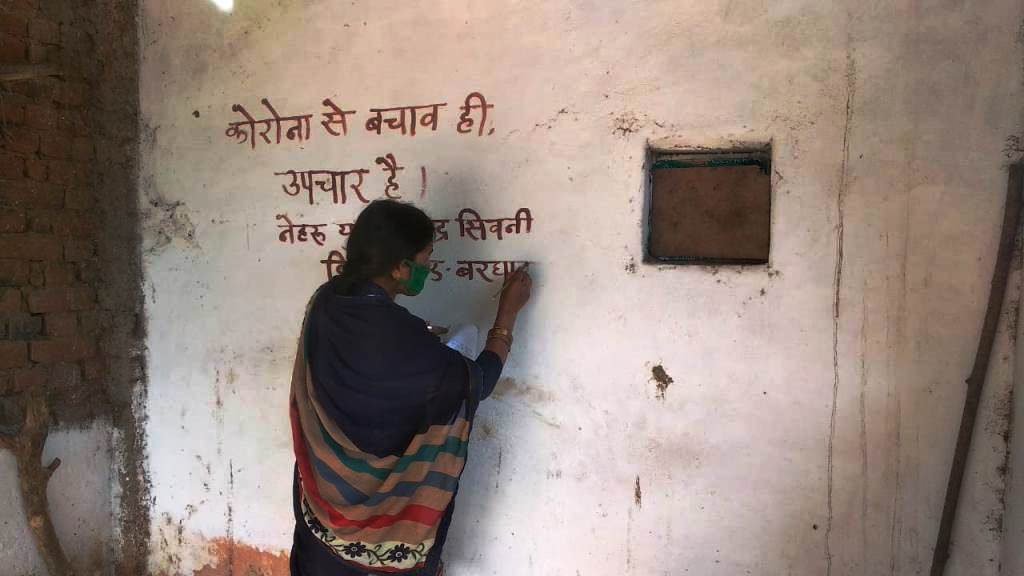 कोरोना से बचाव ही,
उपचार है।
नेहरू सिवनी
बरघाट